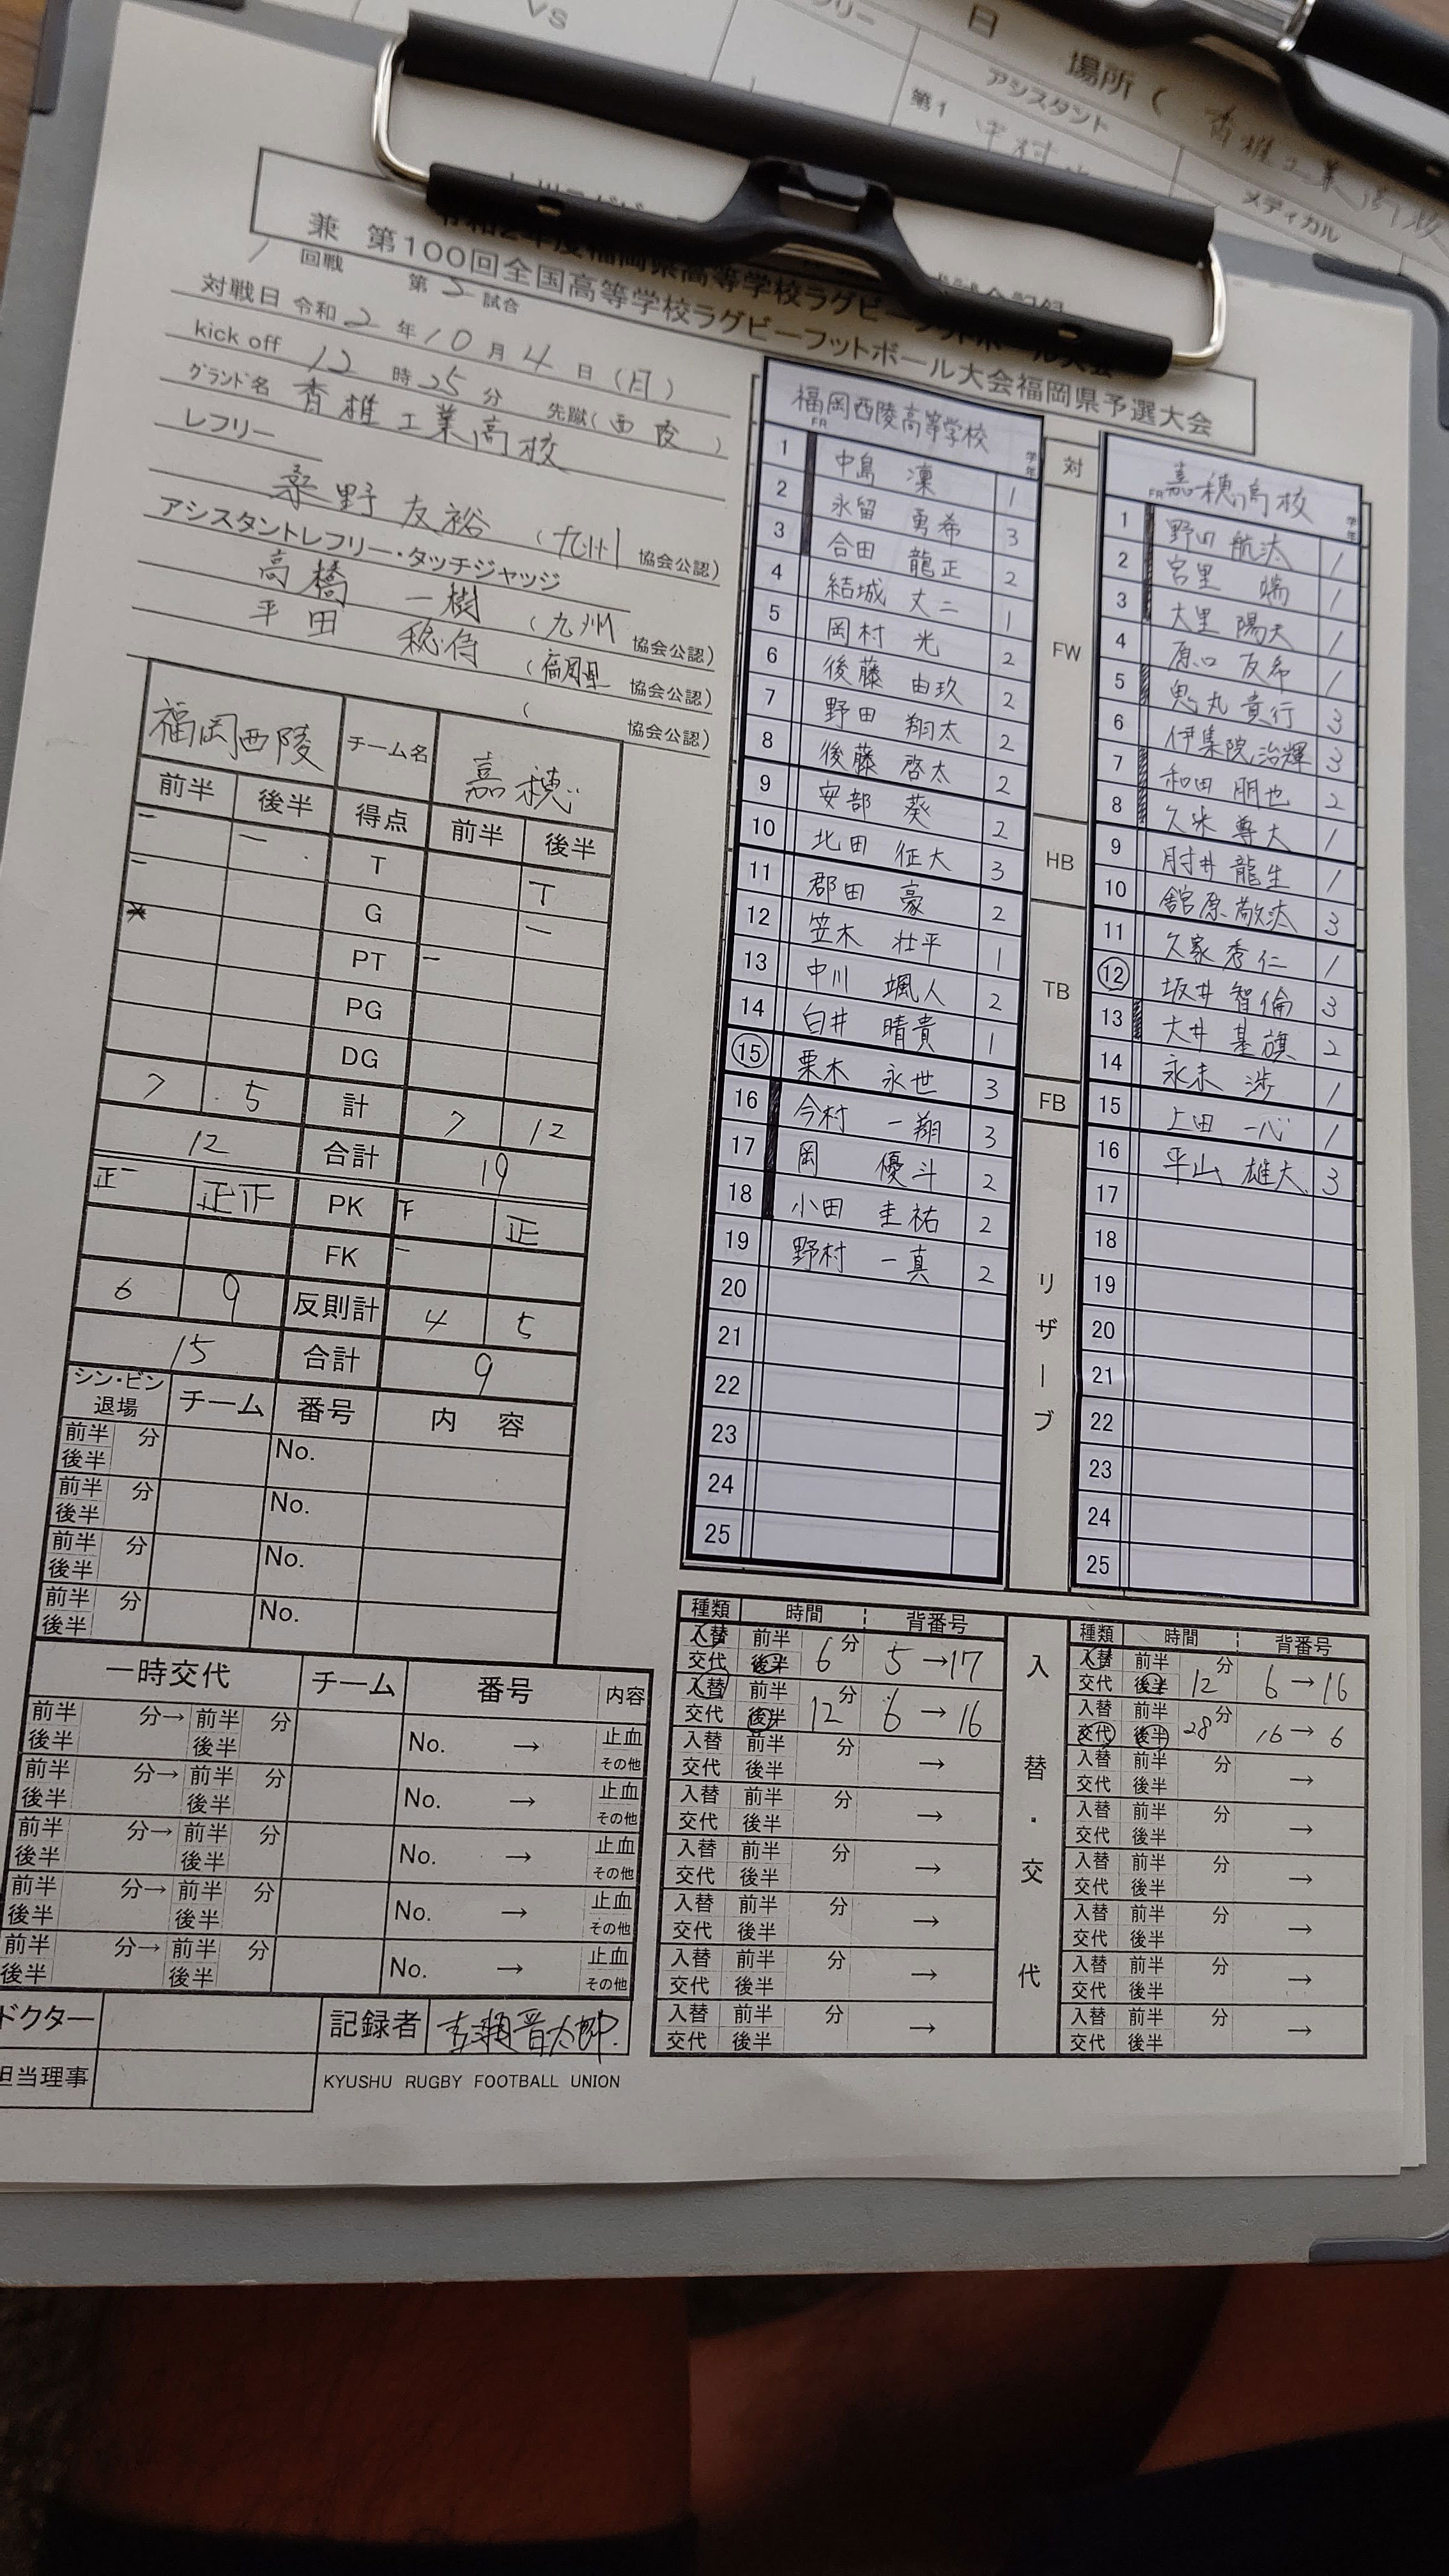 vs
日 場所(香椎工業高校
アシスタント
第1
メディカル
兼 第100回全国高等学校ラグビーフットボール大会福岡県予選大会
1回戦 第2試合
対戦日 令和2年10月4日(日)
kick off 12時25分 先蹴(西陵)
グランド名 香椎工業高校
レフリー
桑野 友裕 (九州 協会公認)
アシスタントレフリー・タッチジャッジ
高橋 一樹 (九州 協会公認)
平田 (福岡県 協会公認)
( 協会公認)
福岡西陵 チーム名 嘉穂
前半 後半 得点 前半 後半
一 一 T T
一 G 一
PT 一
PG
DG
7 5 計 7 12
12 合計 19
正一 正正 PK 下 正
FK 一
6 9 反則計 4 5
15 合計 9
シン・ビン 退場 チーム 番号 内容
前半 後半 分 No.
前半 後半 分 No.
前半 後半 分 No.
前半 後半 分 No.
一時交代 チーム 番号 内容
前半 後半 分→ 前半 後半 分 No. → 止血 その他
前半 後半 分→ 前半 後半 分 No. → 止血 その他
前半 後半 分→ 前半 後半 分 No. → 止血 その他
前半 後半 分→ 前半 後半 分 No. → 止血 その他
前半 後半 分→ 前半 後半 分 No. → 止血 その他
ドクター 記録者 吉瀬晋太郎
担当理事
KYUSHU RUGBY FOOTBALL UNION
福岡西陵高等学校
FR 学年
1 中島 凜 1
2 永留 勇希 3
3 合田 龍正 2
4 結城 丈二 1
5 岡村 光 2
6 後藤 由玖 2
7 野田 翔太 2
8 後藤 啓太 2
9 安部 葵 2
10 北田 征大 3
11 郡田 豪 2
12 笠木 壮平 1
13 中川 颯人 2
14 白井 晴貴 1
15 栗木 永世 3
16 今村 一翔 3
17 岡 優斗 2
18 小田 圭祐 2
19 野村 一真 2
20
21
22
23
24
25
対
FW
HB
TB
FB
リザーブ
嘉穂高校
FR 学年
1 野田 航汰 1
2 宮里 1
3 大里 陽天 1
4 原口 友希 1
5 鬼丸 貴行 3
6 伊集院 治輝 3
7 和田 朋也 2
8 久米 尊大 1
9 肘井 龍生 1
10 舘原 敬汰 3
11 久家 秀仁 1
12 坂井 智倫 3
13 大井 基旗 2
14 永末 渉 1
15 上田 一心 1
16 平山 雄大 3
17
18
19
20
21
22
23
24
25
種類 時間 背番号
入替 交代 前半 後半 6分 5→17
入替 交代 前半 後半 12分 6→16
入替 交代 前半 後半 分 →
入替 交代 前半 後半 分 →
入替 交代 前半 後半 分 →
入替 交代 前半 後半 分 →
入替 交代 前半 後半 分 →
入替 交代 前半 後半 分 →
入替・交代
種類 時間 背番号
入替 交代 前半 後半 12分 6→16
入替 交代 前半 後半 28分 16→6
入替 交代 前半 後半 分 →
入替 交代 前半 後半 分 →
入替 交代 前半 後半 分 →
入替 交代 前半 後半 分 →
入替 交代 前半 後半 分 →
入替 交代 前半 後半 分 →